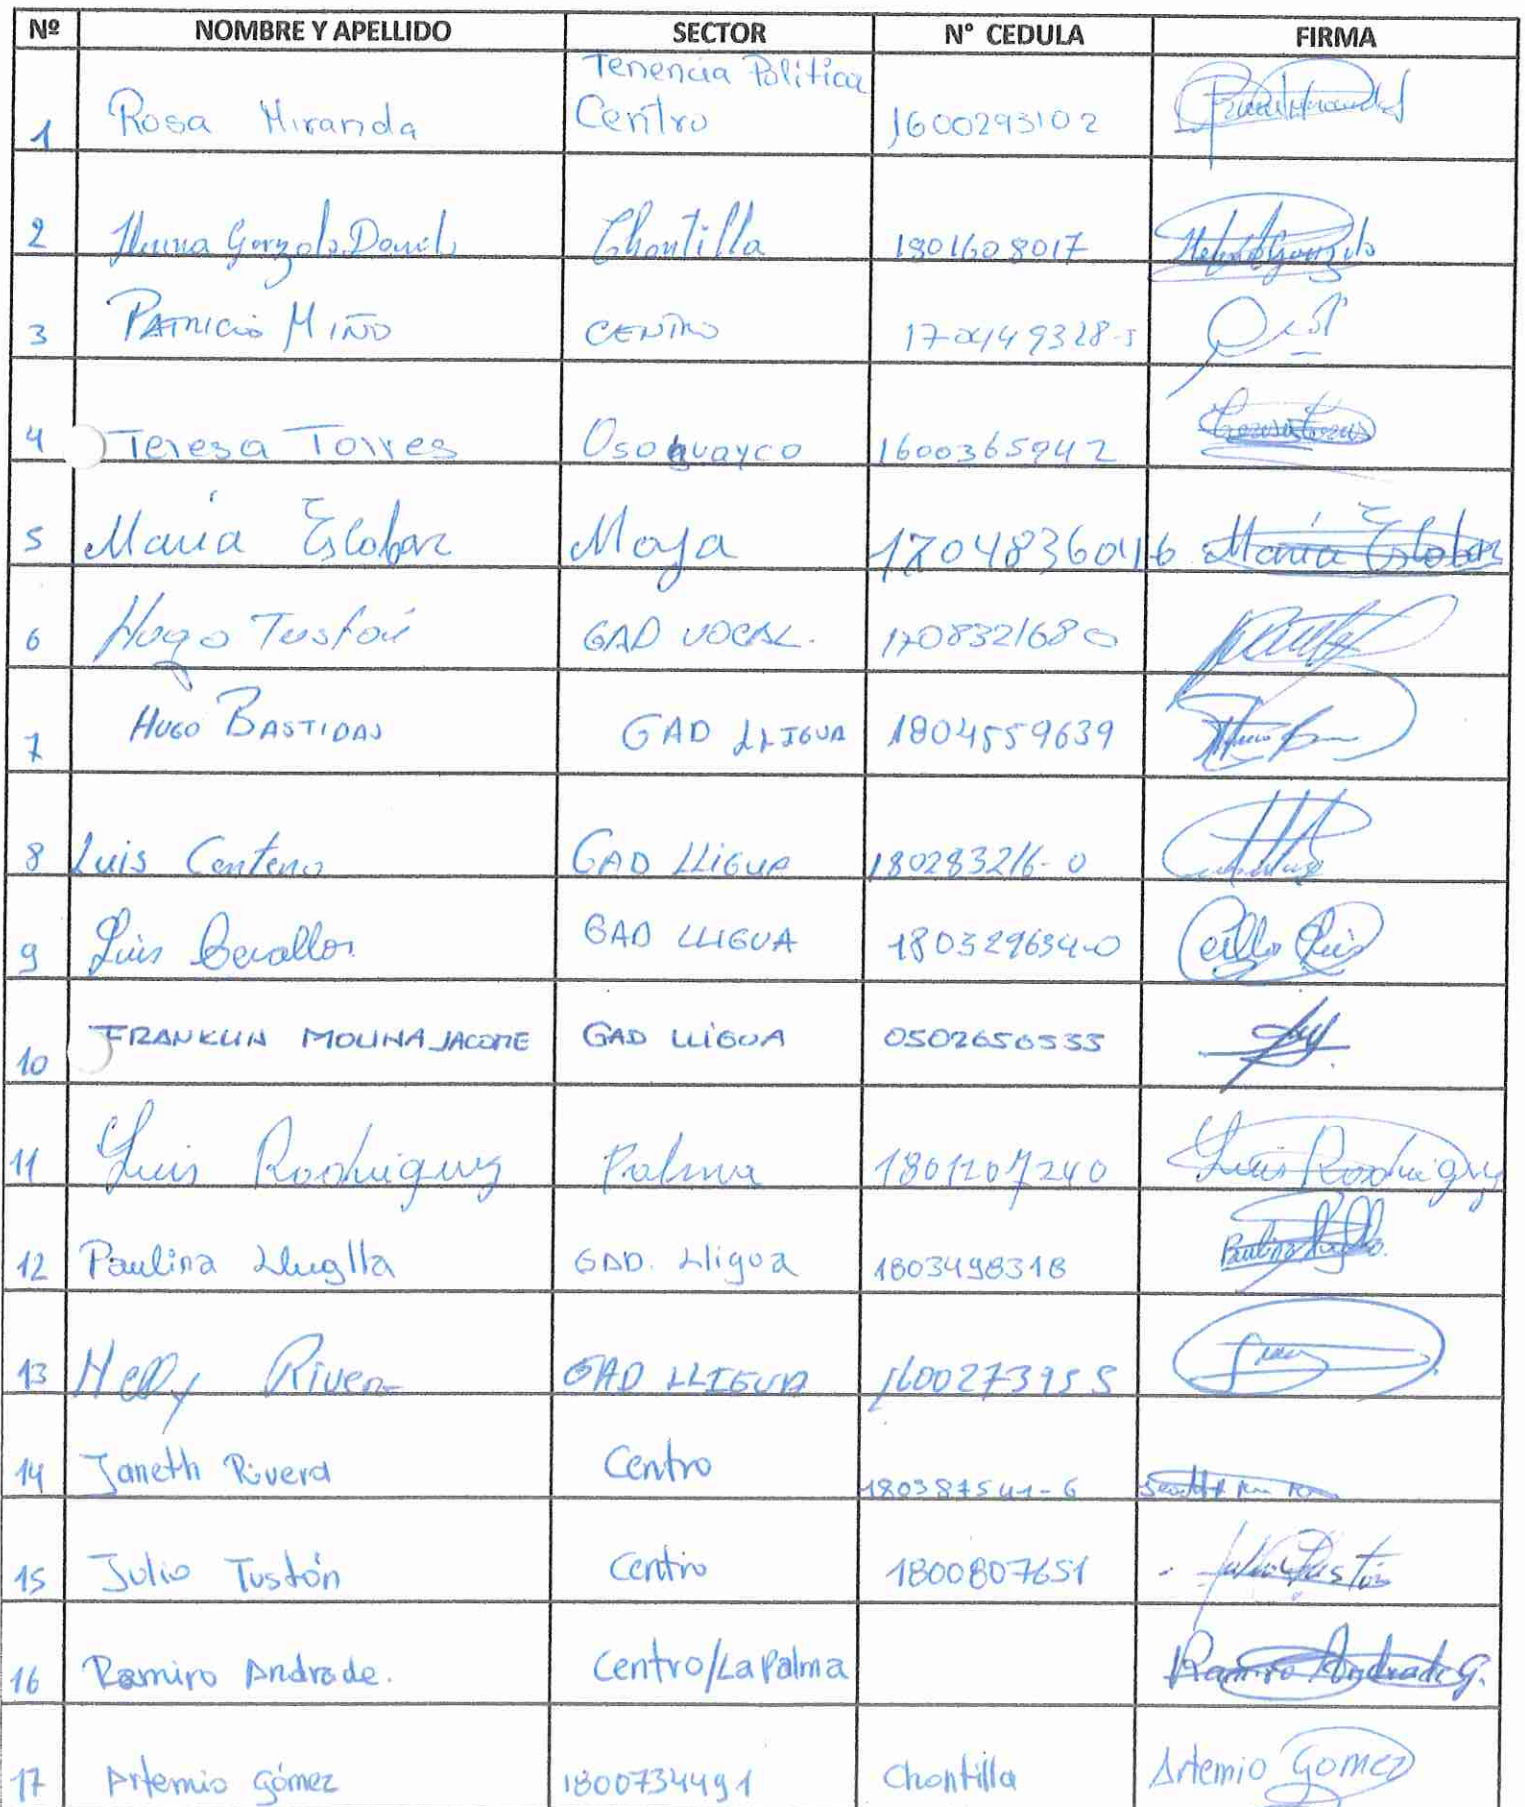 Nº NOMBRE Y APELLIDO SECTOR N° CEDULA FIRMA
Tenencia Política
1 Rosa Miranda Centro 1600293102
2 Gonzalo Chontilla 1801608017
3 Patricio Miño Centro
4 Teresa Torres Osoguayco 1600365942 Teresa Torres
5 María Escobar Moya 17048360416 María Escobar
6 Hugo Tustón GAD VOCAL. 170832168-0
7 Hugo Bastidas GAD LLIGUA 1804559639
8 Luis Centeno GAD LLIGUA 180283216-0
9 Luis Cevallos GAD LLIGUA 180329634-0 Luis
10 FRANKLIN MOLINA JACOME GAD LLIGUA 0502650535
11 Luis Rodriguez Palma 1801207240 Luis Rodriguez
12 Paulina Lluglla GAD. Lligua 1803498318 Paulina Lluglla
13 Nelly Rivera GAD LLIGUA 1600273955
14 Janeth Rivera Centro 180387541-6
15 Julio Tustón Centro 1800807651 Julio Tustón
16 Ramiro Andrade. Centro/La Palma Ramiro Andrade G.
17 Artemio Gómez 1800734491 Chontilla Artemio Gomez